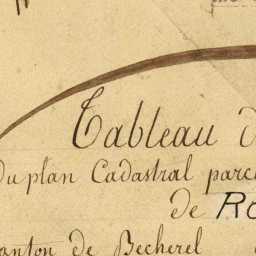 Tableau d
du plan Cadastral parce
de Ro
anton de Becherel